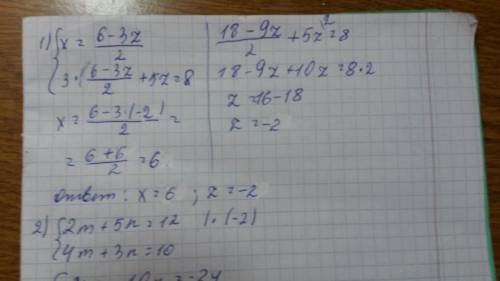 1) { x = (6-3z)/2
{ 3·(6-3z)/2 + 5z = 8
x = (6-3·(-2))/2 =
= (6+6)/2 = 6
(18-9z)/2 + 5z^2 = 8
18-9z+10z=8·2
z=16-18
z=-2
ответ: x=6 ; z=-2
2) { 2m+5n=12 |·(-2)
{ 4m+3n=10